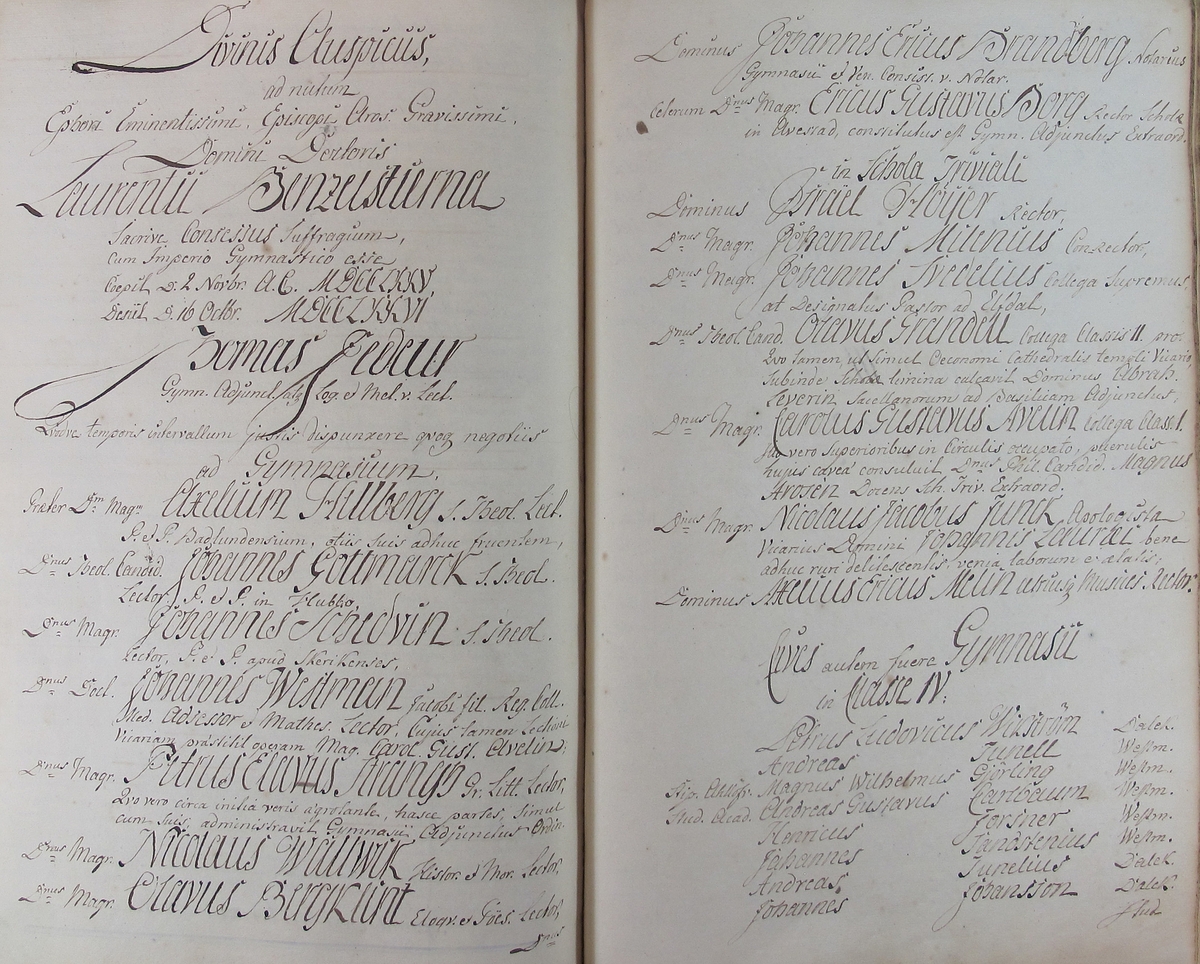 Divinis Auspiciis,
ad nutum
Ephori Eminentissimi, Episcopi Aros. Gravissimi,
Domini Doctoris
Laurentii Benzelstierna
Sacrive Consessus Suffragium,
cum Imperio Gymnastico esse
Coepit D. 2 Novbr. A.C. MDCCLXXXV,
Desiit D. 16 Octbr. MDCCLXXXVI
Thomas Fedeur
Gymn. Adjunct. Log. et Met. v. Lect.
Quove temporis intervallum justis dispunxere qvoq negotiis
ad Gymnasium,
Præter Dnm Magm Axelium Hülberg S. Theol. Lect.
P. et P. Badlundensium, otiis suis adhuc fruentem,
Dnus Theol. Candid. Johannes Gottmarck S. Theol.
Lector, P. et P. in Hubbo,
Dnus Magr. Johannes Schedvin S. Theol.
Lector, P. et P. apud Skerikenses,
Dnus Doct. Johannis Westman Jacobi fil. Reg. Coll.
Med. Adsessor et Mathes. Lector, Cujus tamen Lectoris
Vicariam præstitit operam Mag. Carol. Gust. Avelin;
Dnus Magr. Petrus Elavus Strangh Gr. Litt. Lector,
Qvo vero circa initia veris ægrotante, hasce partes, simul
cum suis, administravit Gymnasii Adjunctus Ordin.
Dnus Magr. Nicolaus Wallwik Histor. et Mor. Lector,
Dnus Magr. Olavus Bergklint Eloqv. et Poes. Lector,
Dnus
Dominus Johannes Ericus Brandberg Notarius
Gymnasii et Ven. Consiss. v. Notar.
Ceterum Dnus Magr. Ericus Gustavus Borg Rector Scholæ
in Avestad, constitutus est Gymn. Adjunctus Extraord.
in Schola Triviali
Dominus Israel Höijer Rector,
Dnus Magr. Johannes Milenius Conrector,
Dnus Magr. Johannes Svedelius Collega Supremus,
at Designatus Pastor ad Elfdal,
Dnus Theol. Cand. Olavus Grandell Collega Classis II. pro
Qvo tamen, ut simul Oeconomi Cathedralis templi Vicario,
Subinde Scholæ limina calcavit Dominus Abrah.
Leverin Sacellanorum ad Basilicam Adjunctus;
Dnus Magr. Carolus Gustavus Avelin Collega Class I.
Quo vero Superioribus in Circulis occupato, puerulis
hujus caveæ consuluit Dnus Phil. Candid. Magnus
Arosen Docens Sch. Triv. Extraord.
Dnus Magr. Nicolaus Jacobus Funck Apologista
Vicarius Domini Johannis Lauræi bene
adhuc ruri delitescentis, venia laborum et ætatis;
Dominus Axelius Ericus Melin utriusq Musices Rector.
Cives autem fuere Gymnasii
in Classe IV:
Petrus Ludovicus Wikström Dalek.
Andreas Junell Westm.
Magnus Wilhelmus Gjörling Westm.
Stud. Acad. Andreas Gustavus Carlbaum Westm.
Henricus Forsner Westm.
Johannes Sandstenius Westm.
Andreas Junelius Dalek.
Johannes Johansson Dalek.
Stud